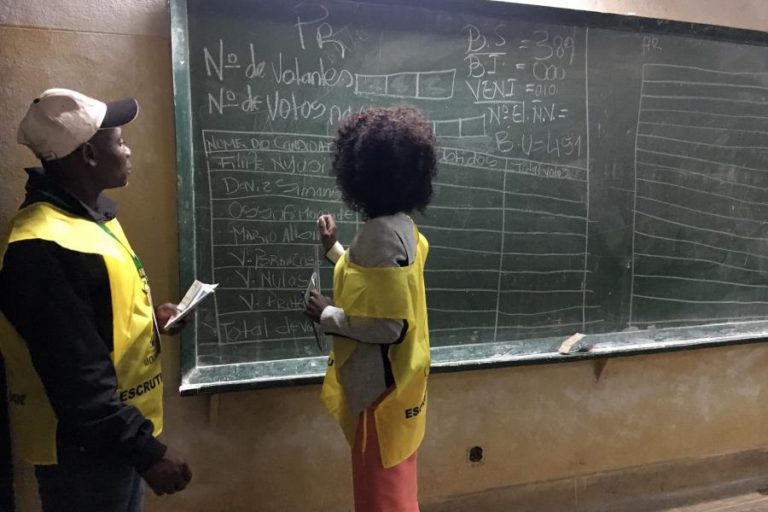 PR
Nº de Votantes
Nº de Votos
B.S = 389
B.I = 000
VENI = 010
Nº El. N.V. =
B.U = 491
NOME DO CANDIDAT
Total Votos
FILIPE NYUSI
Daviz Siman
Ossufo Mom de
Mario Al
V. Brancos
V. NULOS
V. Prot
Total de vo
PR
ESCRUT
ESCRU